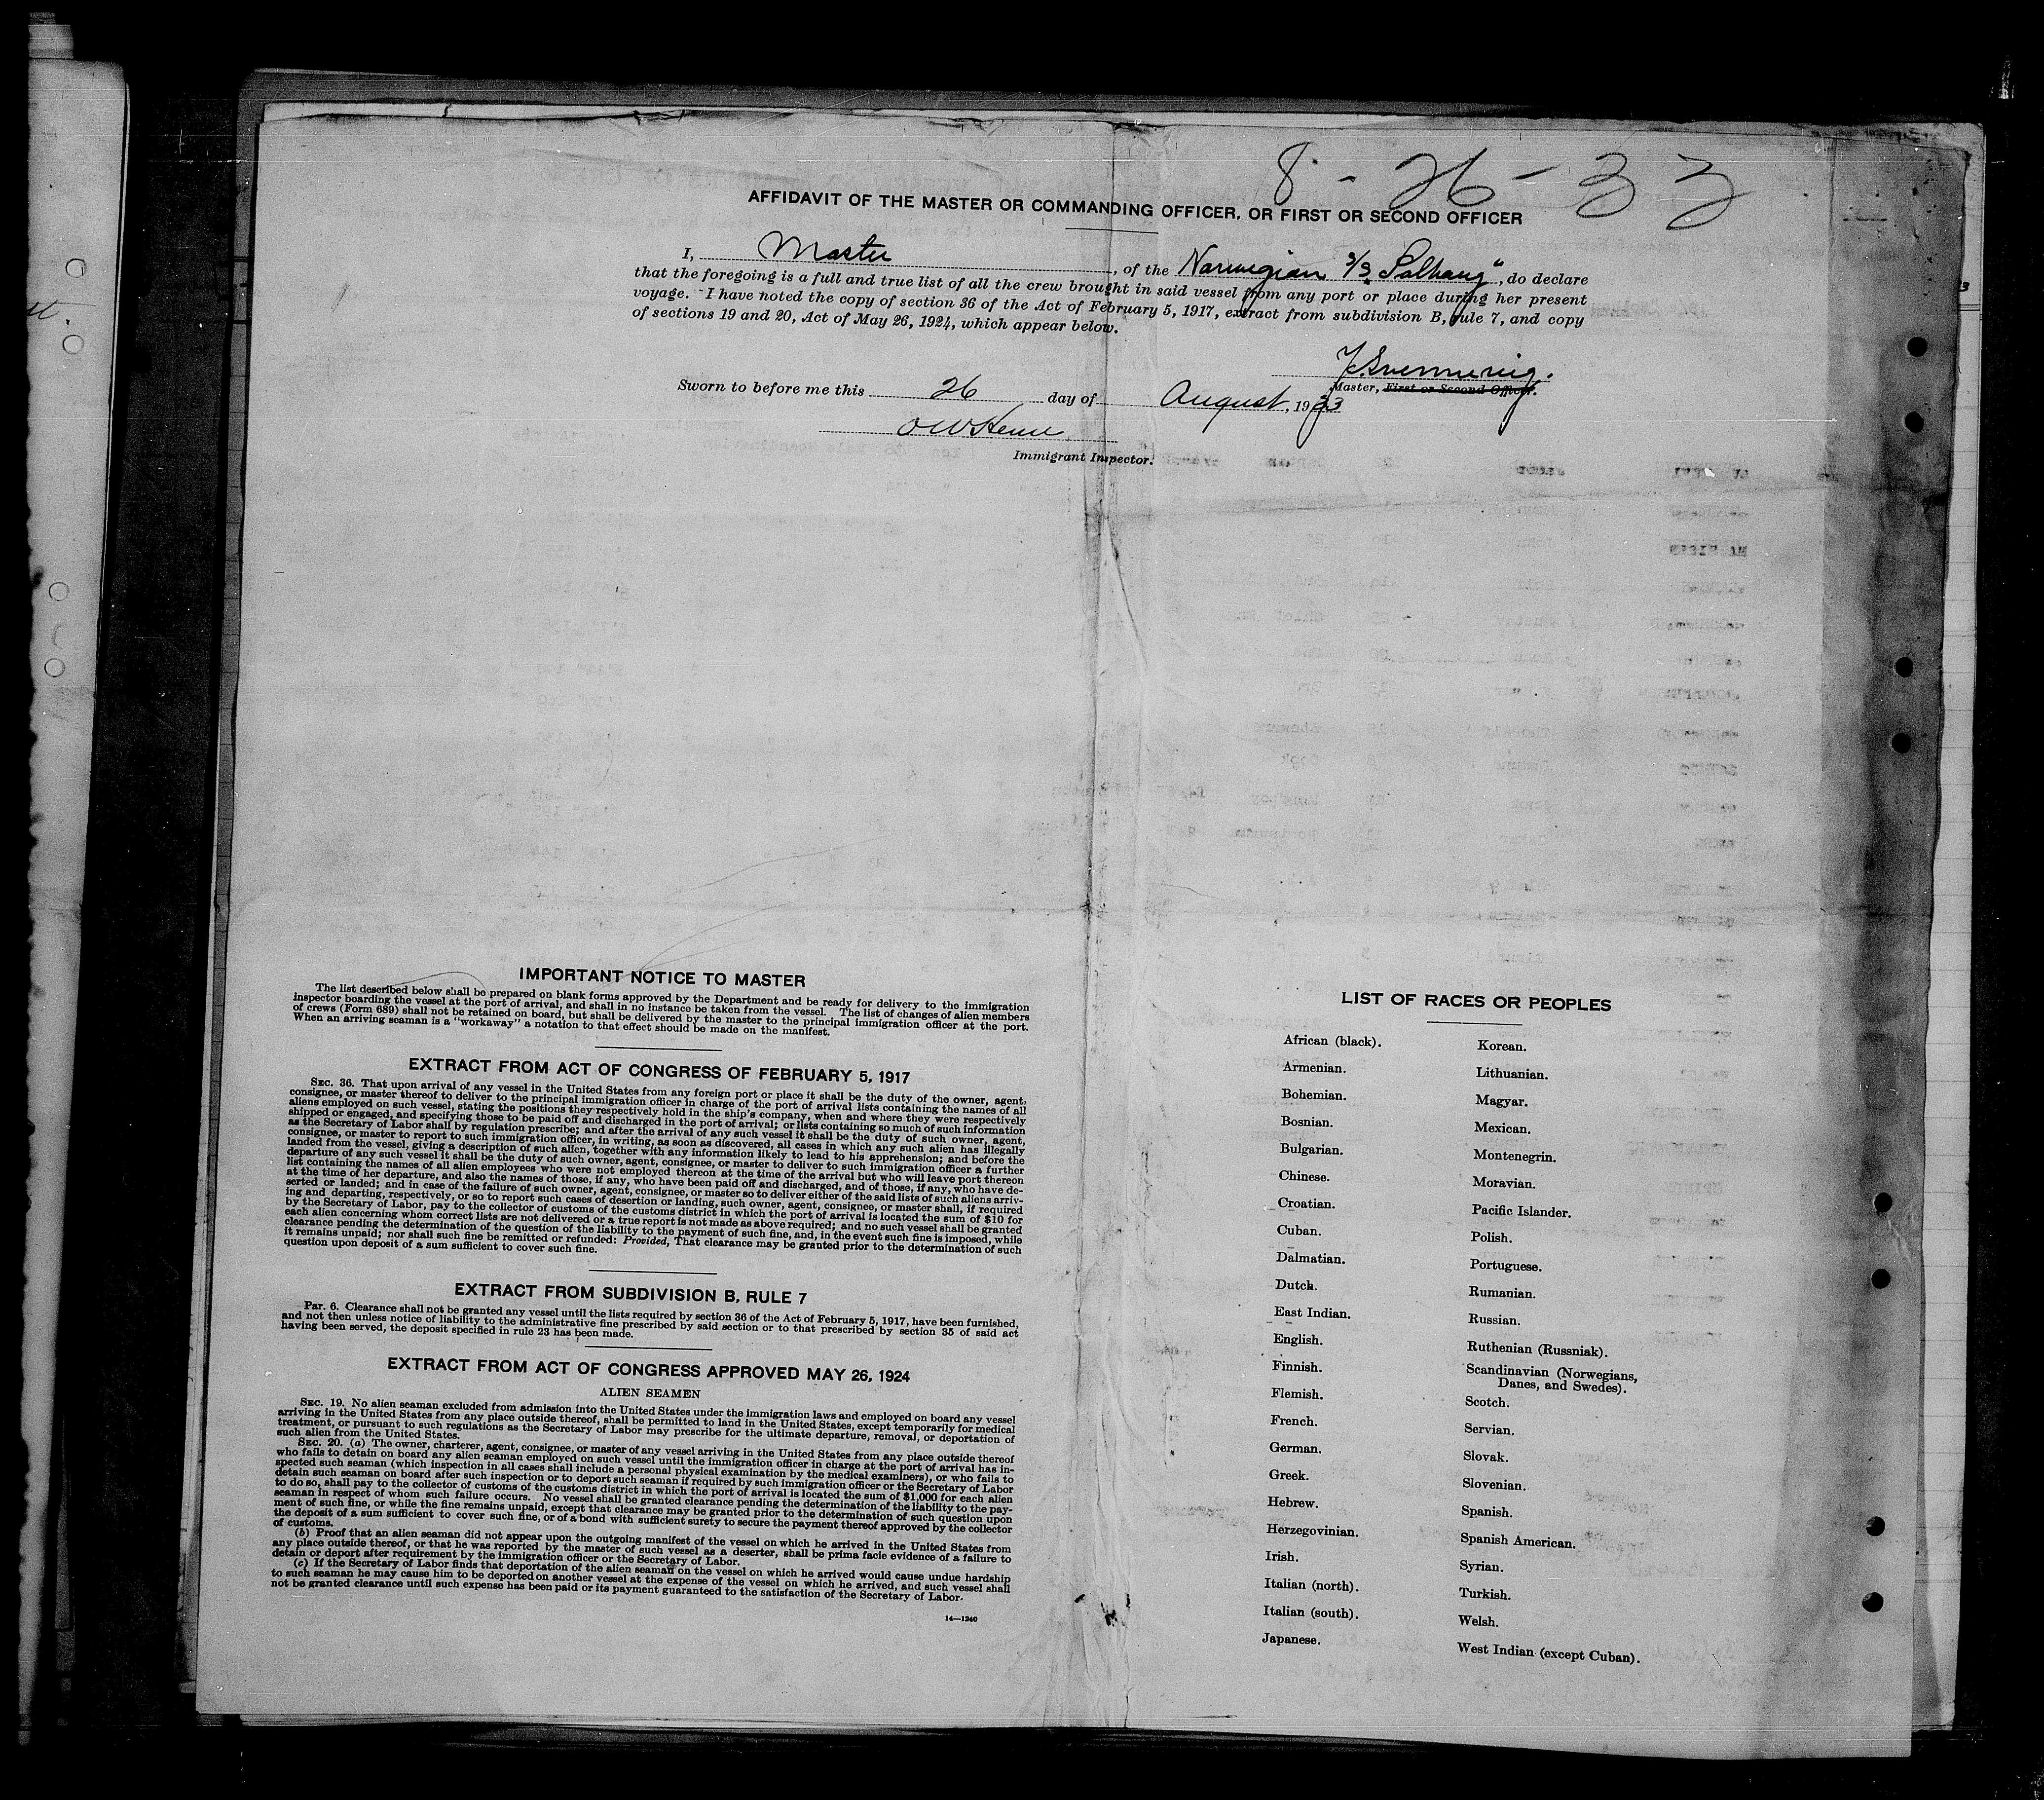 8 - 26 - 33
AFFIDAVIT OF THE MASTER OR COMMANDING OFFICER, OR FIRST OR SECOND OFFICER
I, Master, of the Norwegian s/s "Solhaug", do declare
that the foregoing is a full and true list of all the crew brought in said vessel from any port or place during her present
voyage. I have noted the copy of section 36 of the Act of February 5, 1917, extract from subdivision B, rule 7, and copy
of sections 19 and 20, Act of May 26, 1924, which appear below.
Master, First or Second Officer.
Sworn to before me this 26 day of August, 1933
Immigrant Inspector.
IMPORTANT NOTICE TO MASTER
The list described below shall be prepared on blank forms approved by the Department and be ready for delivery to the immigration
inspector boarding the vessel at the port of arrival, and shall in no instance be taken from the vessel. The list of changes of alien members
of crews (Form 689) shall not be retained on board, but shall be delivered by the master to the principal immigration officer at the port.
When an arriving seaman is a "workaway" a notation to that effect should be made on the manifest.
EXTRACT FROM ACT OF CONGRESS OF FEBRUARY 5, 1917
SEC. 36. That upon arrival of any vessel in the United States from any foreign port or place it shall be the duty of the owner, agent,
consignee, or master thereof to deliver to the principal immigration officer in charge of the port of arrival lists containing the names of all
aliens employed on such vessel, stating the positions they respectively hold in the ship's company, when and where they were respectively
shipped or engaged, and specifying those to be paid off and discharged in the port of arrival; or lists containing so much of such information
as the Secretary of Labor shall by regulation prescribe; and after the arrival of any such vessel it shall be the duty of such owner, agent,
consignee, or master to report to such immigration officer, in writing, as soon as discovered, all cases in which any such alien has illegally
landed from the vessel, giving a description of such alien, together with any information likely to lead to his apprehension; and before the
departure of any such vessel it shall be the duty of such owner, agent, consignee, or master to deliver to such immigration officer a further
list containing the names of all alien employees who were not employed thereon at the time of the arrival but who will leave port thereon
at the time of her departure, and also the names of those, if any, who have been paid off and discharged, and of those, if any, who have de-
serted or landed; and in case of the failure of such owner, agent, consignee, or master so to deliver either of the said lists of such aliens arriv-
ing and departing, respectively, or so to report such cases of desertion or landing, such owner, agent, consignee, or master shall, if required
by the Secretary of Labor, pay to the collector of customs of the customs district in which the port of arrival is located the sum of $10 for
each alien concerning whom correct lists are not delivered or a true report is not made as above required; and no such vessel shall be granted
clearance pending the determination of the question of the liability to the payment of such fine, and, in the event such fine is imposed, while
it remains unpaid; nor shall such fine be remitted or refunded: Provided, That clearance may be granted prior to the determination of such
question upon deposit of a sum sufficient to cover such fine.
EXTRACT FROM SUBDIVISION B, RULE 7
Par. 6. Clearance shall not be granted any vessel until the lists required by section 36 of the Act of February 5, 1917, have been furnished,
and not then unless notice of liability to the administrative fine prescribed by said section or to that prescribed by section 35 of said act
having been served, the deposit specified in rule 23 has been made.
EXTRACT FROM ACT OF CONGRESS APPROVED MAY 26, 1924
ALIEN SEAMEN
SEC. 19. No alien seaman excluded from admission into the United States under the immigration laws and employed on board any vessel
arriving in the United States from any place outside thereof, shall be permitted to land in the United States, except temporarily for medical
treatment, or pursuant to such regulations as the Secretary of Labor may prescribe for the ultimate departure, removal, or deportation of
such alien from the United States.
SEC. 20. (a) The owner, charterer, agent, consignee, or master of any vessel arriving in the United States from any place outside thereof
who fails to detain on board any alien seaman employed on such vessel until the immigration officer in charge at the port of arrival has in-
spected such seaman (which inspection in all cases shall include a personal physical examination by the medical examiners), or who fails to
detain such seaman on board after such inspection or to deport such seaman if required by such immigration officer or the Secretary of Labor
to do so, shall pay to the collector of customs of the customs district in which the port of arrival is located the sum of $1,000 for each alien
seaman in respect of whom such failure occurs. No vessel shall be granted clearance pending the determination of the liability to the pay-
ment of such fine, or while the fine remains unpaid, except that clearance may be granted prior to the determination of such question upon
the deposit of a sum sufficient to cover such fine, or of a bond with sufficient surety to secure the payment thereof approved by the collector
of customs.
(b) Proof that an alien seaman did not appear upon the outgoing manifest of the vessel on which he arrived in the United States from
any place outside thereof, or that he was reported by the master of such vessel as a deserter, shall be prima facie evidence of a failure to
detain or deport after requirement by the immigration officer or the Secretary of Labor.
(c) If the Secretary of Labor finds that deportation of the alien seaman on the vessel on which he arrived would cause undue hardship
to such seaman he may cause him to be deported on another vessel at the expense of the vessel on which he arrived, and such vessel shall
not be granted clearance until such expense has been paid or its payment guaranteed to the satisfaction of the Secretary of Labor.
14—1240
LIST OF RACES OR PEOPLES
African (black).
Armenian.
Bohemian.
Bosnian.
Bulgarian.
Chinese.
Croatian.
Cuban.
Dalmatian.
Dutch.
East Indian.
English.
Finnish.
Flemish.
French.
German.
Greek.
Hebrew.
Herzegovinian.
Irish.
Italian (north).
Italian (south).
Japanese.
Korean.
Lithuanian.
Magyar.
Mexican.
Montenegrin.
Moravian.
Pacific Islander.
Polish.
Portuguese.
Rumanian.
Russian.
Ruthenian (Russniak).
Scandinavian (Norwegians,
Danes, and Swedes).
Scotch.
Servian.
Slovak.
Slovenian.
Spanish.
Spanish American.
Syrian.
Turkish.
Welsh.
West Indian (except Cuban).